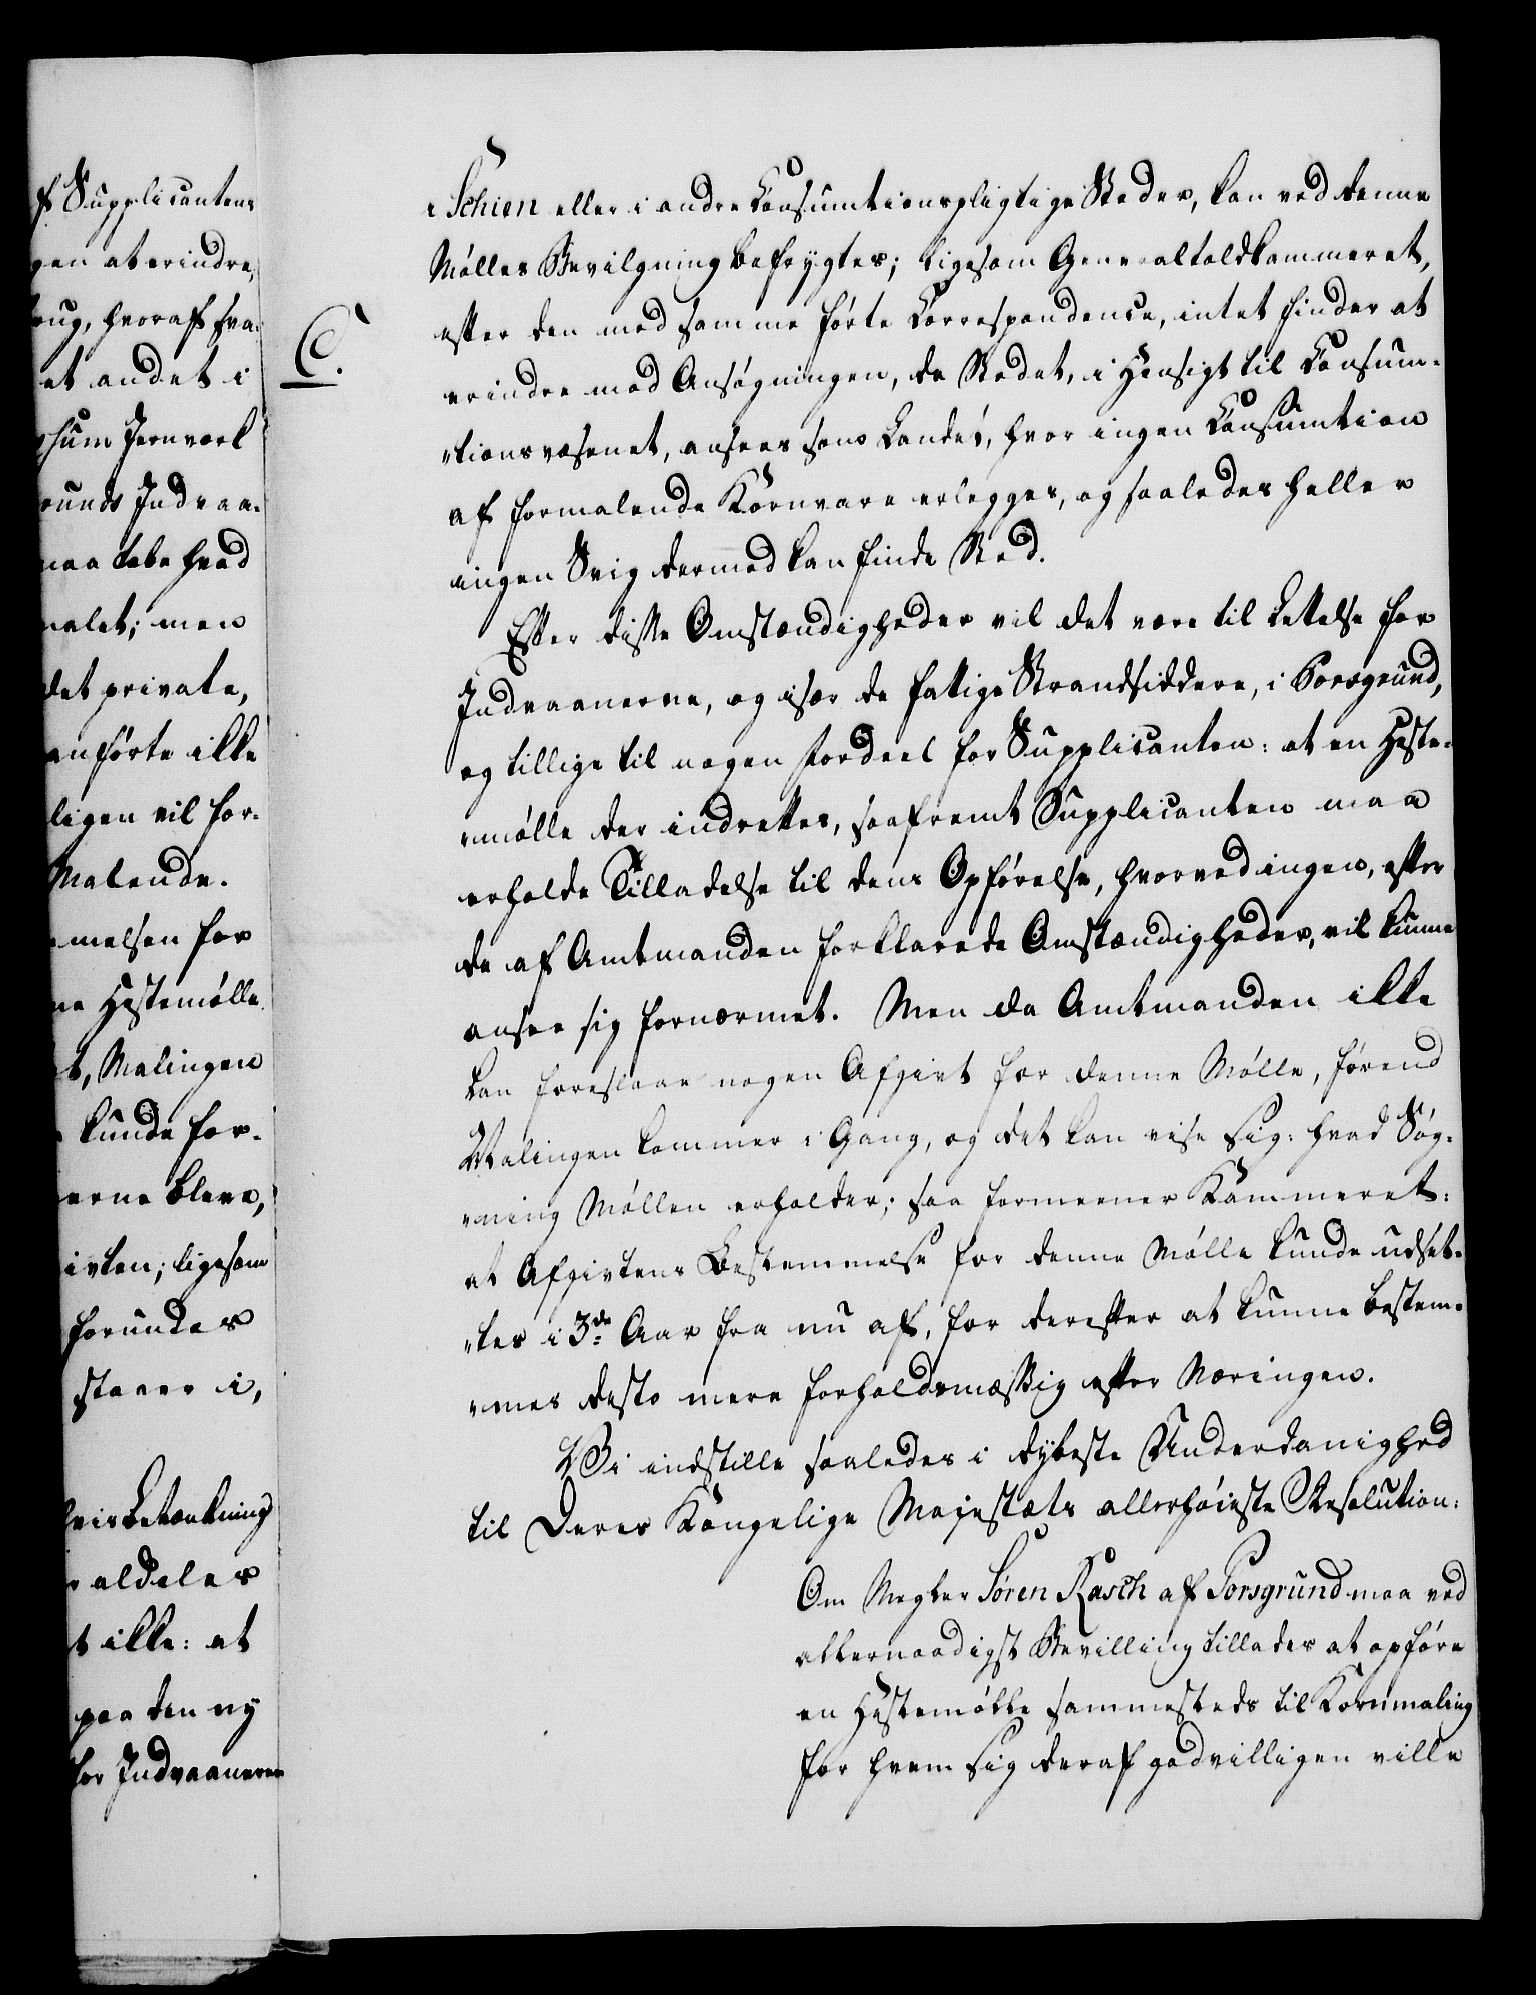 f Supplicantens
gen at erindre,
brug, hvoraf sva-
et andet i
sum Jernværk
grunds Indvaa-
maa kabe hvad
malet; men
det private,
anførte ikke
ligen vil for-
Malende.
melsen for
ne Hestemølle
t, Malingen
kunde for-
erne bleve,
ivten; ligesom
forundes
staaer i,
hvis Betænkning
aldeles
t ikke: at
paa den ny
for Indvaanerne
C.
i Schien eller i andre Consumtionspligtige Steder, kan ved denne
Mølles Bevilgning befrygtes; ligesom Generaltoldkammeret,
efter den med samme førte Correspondence, intet finder at
erindre mod Ansøgningen, da Stedet, i Hensigt til Consum-
"tionsvæsenet, ansees som Landet, hvor ingen Consumtion
af formalende Kornvare erlegges, og saaledes heller
ingen Svig dermed kan finde Sted.
Efter disse Omstændigheder vil det være til Lettelse for
Indvaanerne, og især de fattige Strandsiddere, i Porsgrund,
og tillige til nogen Fordeel for Supplicanten: at en Heste-
"mølle der indrettes, saafremt Supplicanten maa
erholde Tilladelse til dens Opførelse, hvorved ingen, efter
de af Amtmanden forklarede Omstændigheder, vil kunne
ansee sig fornærmet. Men da Amtmanden ikke
kan foreslaae nogen Afgivt for denne Mølle, førend
Malingen kommer i Gang, og det kan vise sig: hvad Søg-
"ning Møllen erholder; saa formeener Kammeret:
at Afgivtens Bestemmelse for denne Mølle kunde udsæt-
"tes i 3de Aar fra nu af, for derefter at kunne bestem-
"mes desto mere forholdsmæssig efter Næringen.
Vi indstille saaledes i dybeste Underdanighed
til Deres Kongelige Majestæts allerhøieste Resolution:
Om Megler Søren Rasch af Porsgrund maa ved
allernaadigst Bevilling tillades at opføre
en Hestemølle sammesteds til Kornmaling
for hvem sig deraf godvilligen ville